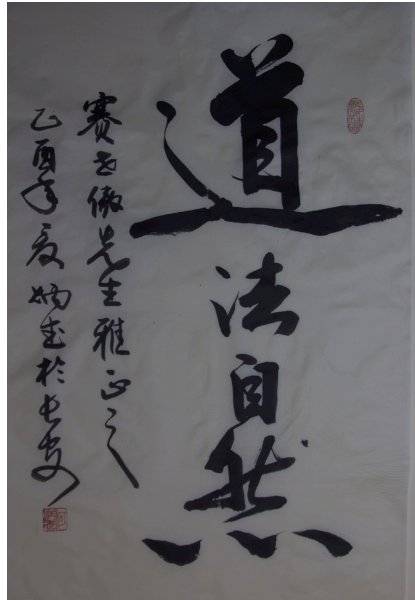 道法自然
赛世傲先生雅正之
乙酉年夏炳武於长安